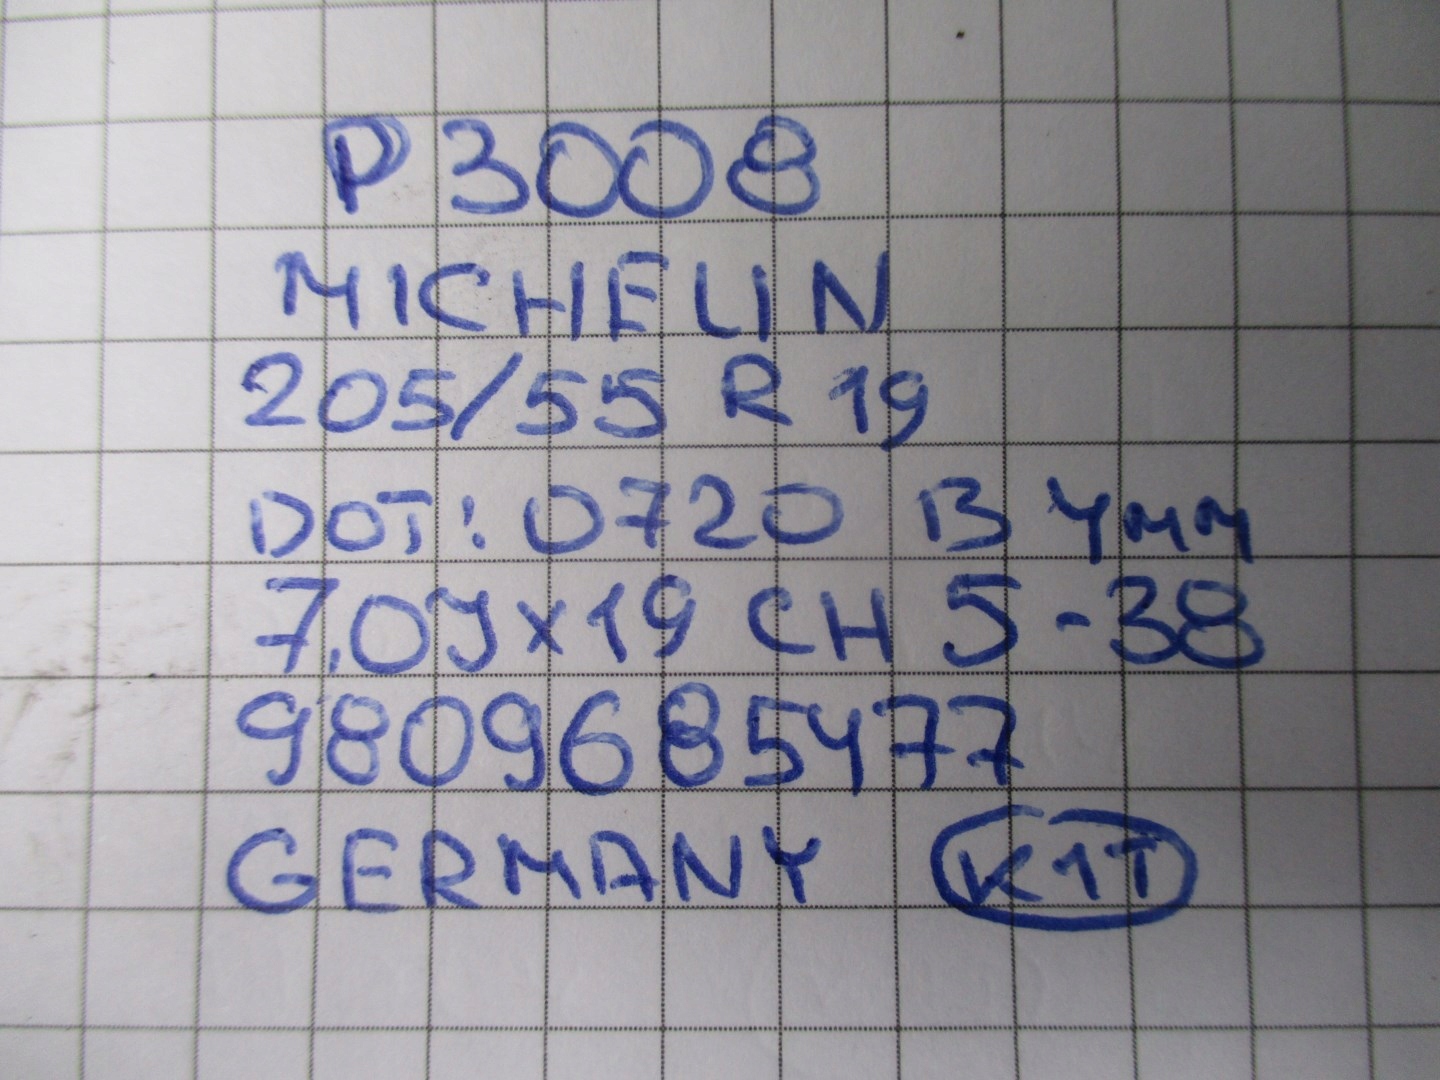 P 3008
MICHELIN
205/55 R 19
DOT: 0720 B 4mm
7.0Jx19 CH 5-38
9809685477
GERMANY K1T